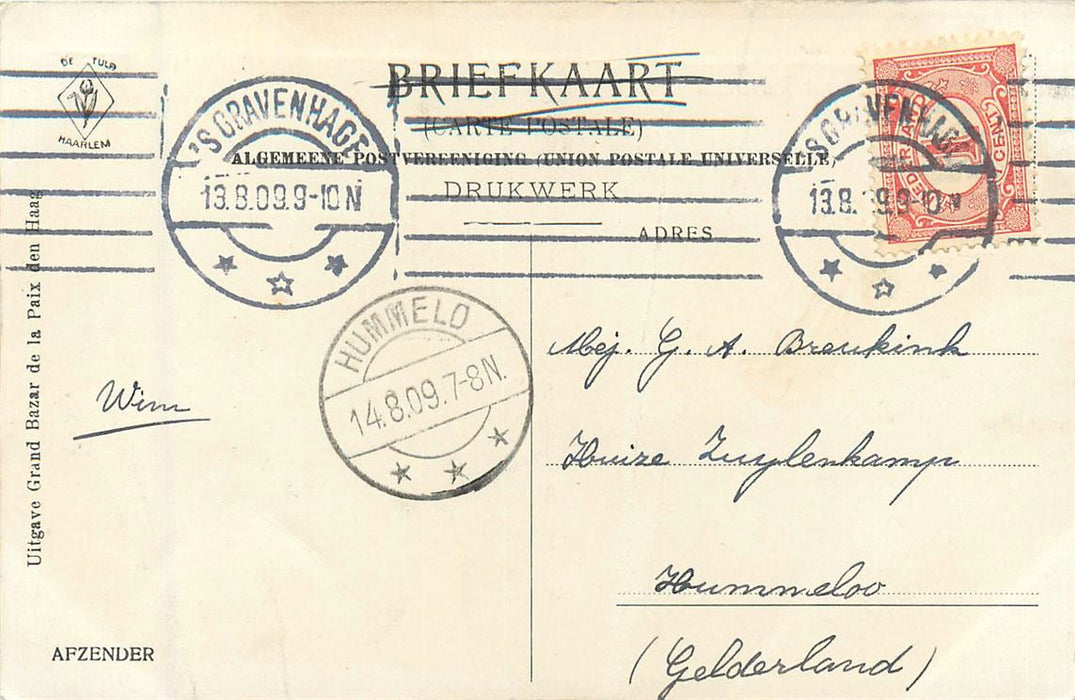 DE TULP
HAARLEM
BRIEFKAART
(CARTE POSTALE)
ALGEMEENE POSTVEREENIGING (UNION POSTALE UNIVERSELLE)
DRUKWERK
ADRES
'S GRAVENHAGE
13.8.09.9-10N
'S GRAVENHAGE
13.8. 9.9-10 N
NEDERLAND
1 CENT
HUMMELO
14.8.09.7-8N.
Uitgave Grand Bazar de la Paix den Haag
Wim
Mej. G. A. Breukink
Huize Zuylenkamp
Hummeloo
(Gelderland)
AFZENDER